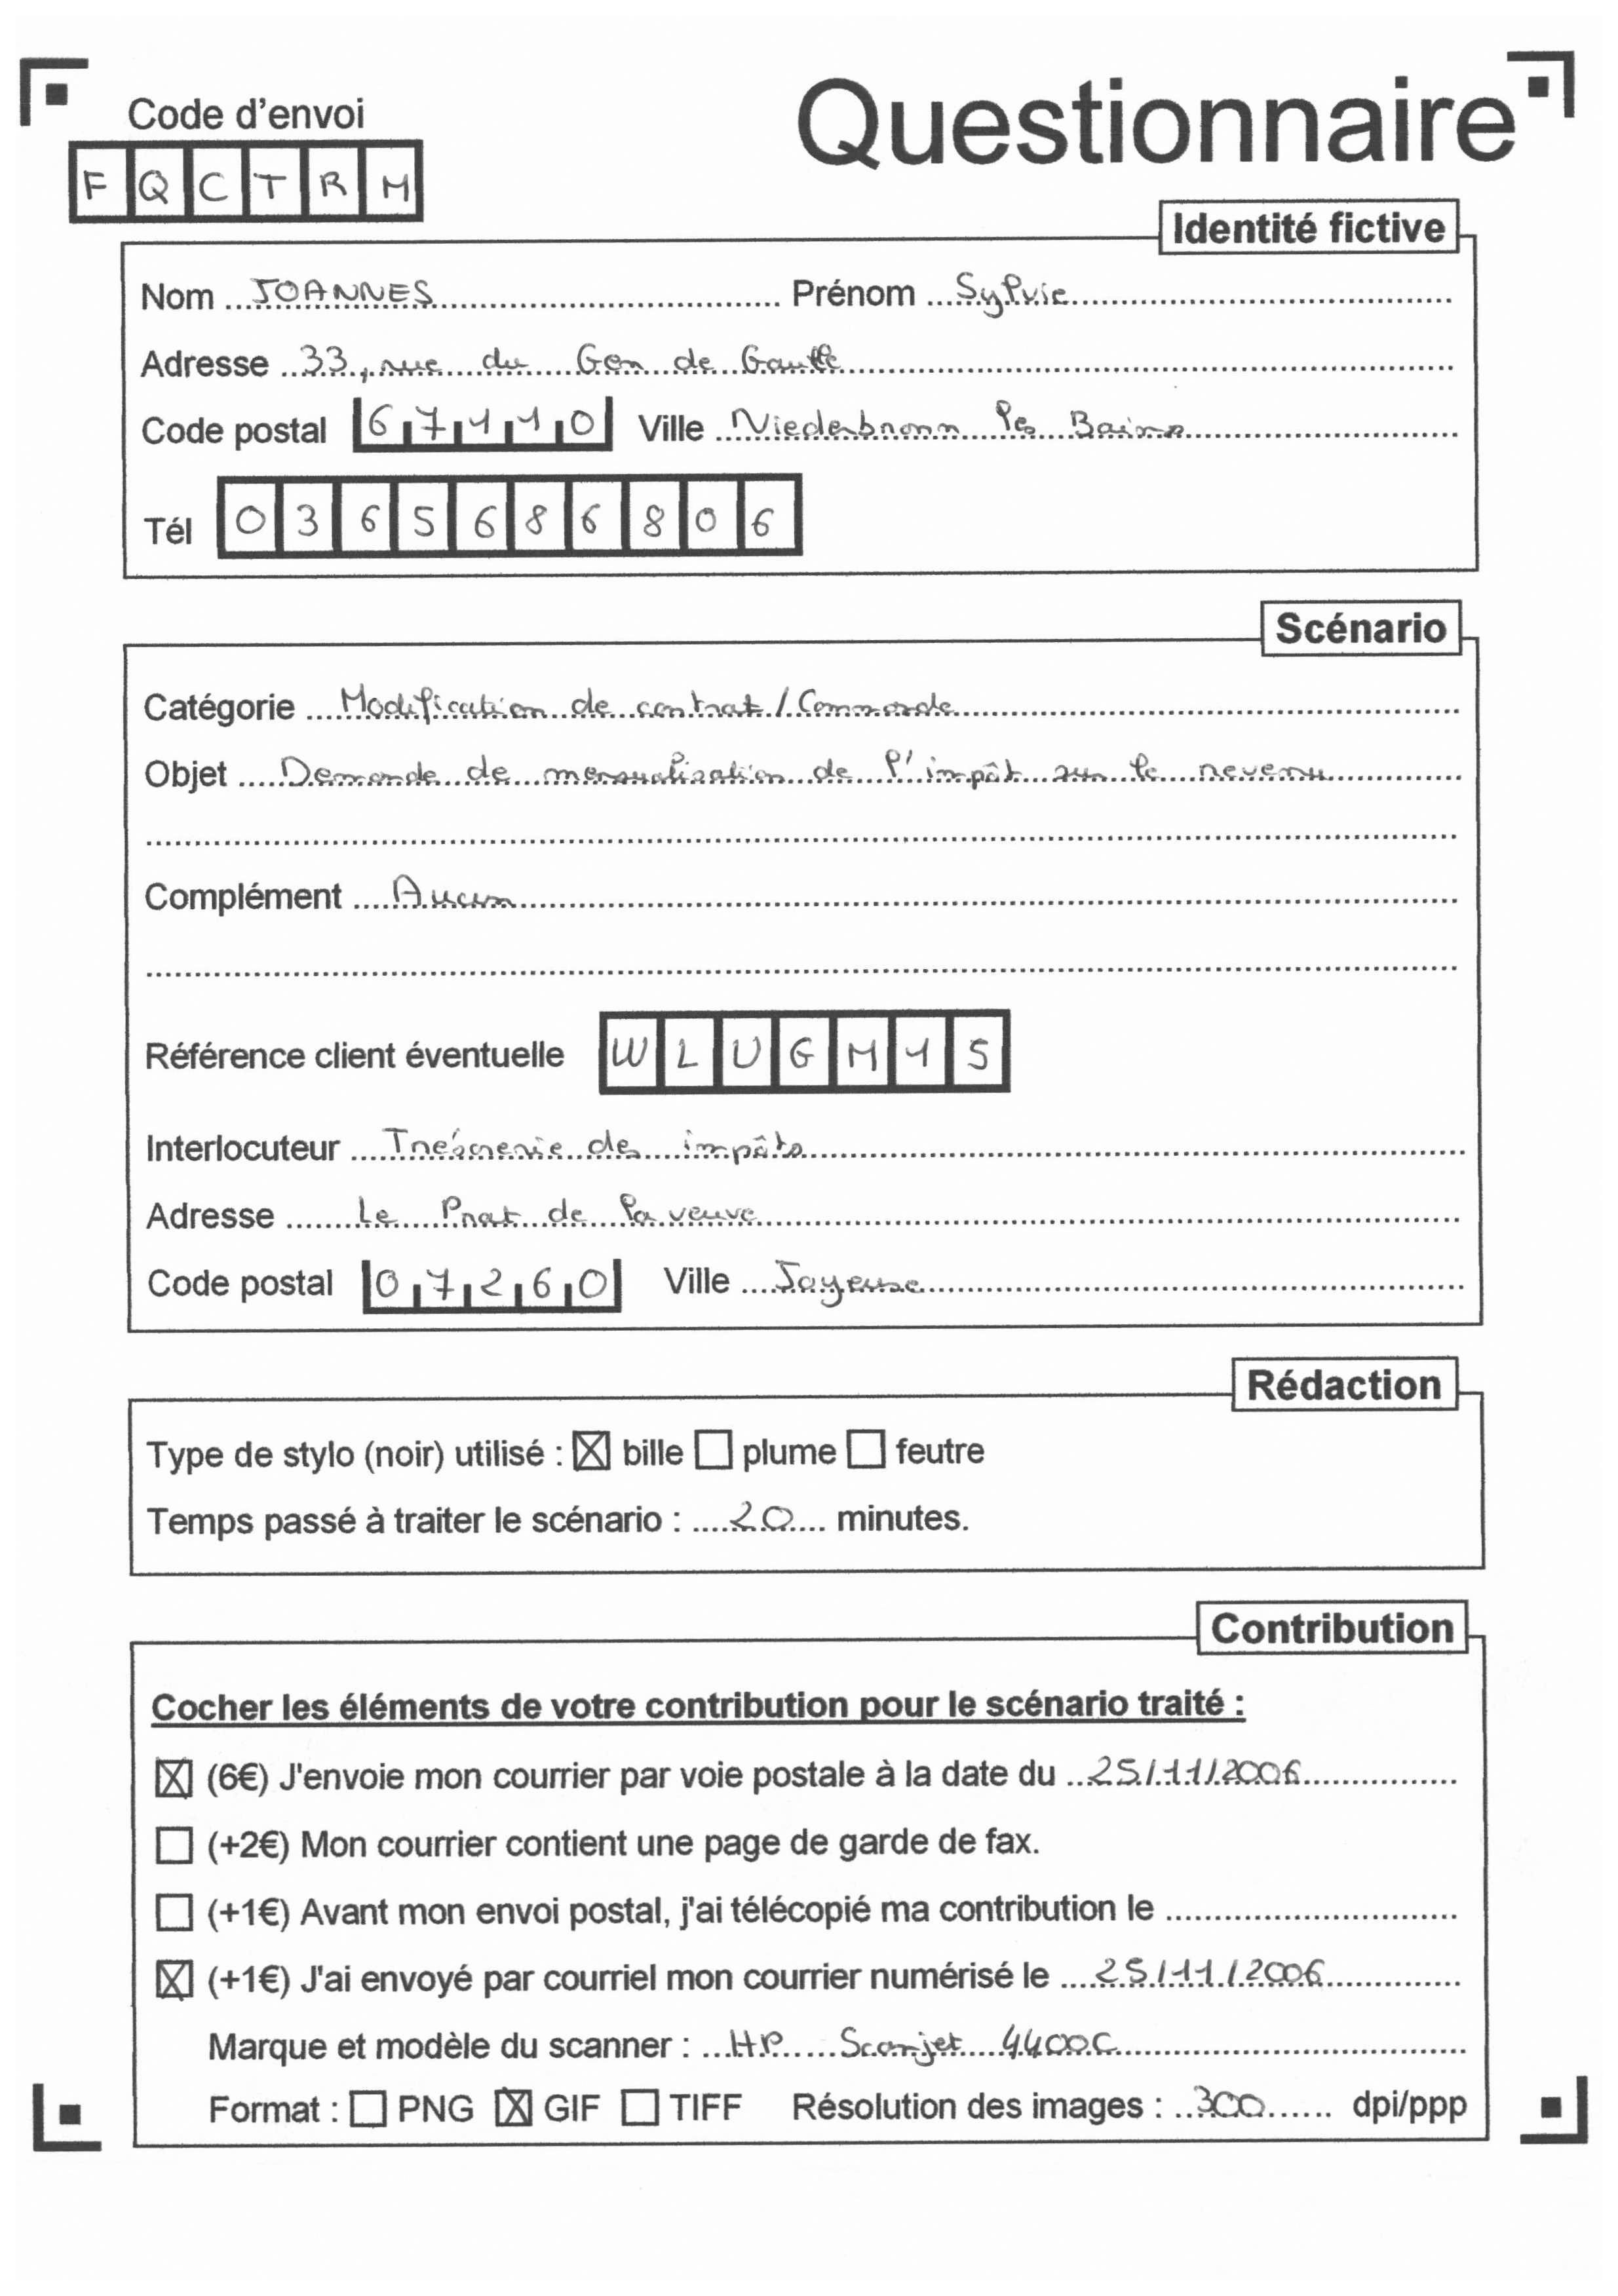 Questionnaire
Code d'envoi
F Q C T R M
Identité fictive
Nom JOANNES Prénom Sylvie
Adresse 33, rue du Gen de Gaulle
Code postal 67110 Ville Niederbronn les Bains
Tél 0365686806
Scénario
Catégorie Modification de contrat / Commande
Objet Demande de mensualisation de l'impôt sur le revenu
Complément Aucun
Référence client éventuelle WLUGM15
Interlocuteur Trésorerie des impôts
Adresse Le Prat de la veuve
Code postal 07260 Ville Joyeuse
Rédaction
Type de stylo (noir) utilisé : ☒ bille ☐ plume ☐ feutre
Temps passé à traiter le scénario : 20 minutes.
Contribution
Cocher les éléments de votre contribution pour le scénario traité :
☒ (6€) J'envoie mon courrier par voie postale à la date du 25/11/2006
☐ (+2€) Mon courrier contient une page de garde de fax.
☐ (+1€) Avant mon envoi postal, j'ai télécopié ma contribution le
☒ (+1€) J'ai envoyé par courriel mon courrier numérisé le 25/11/2006
Marque et modèle du scanner : HP Scanjet 4400C
Format : ☐ PNG ☒ GIF ☐ TIFF Résolution des images : 300 dpi/ppp